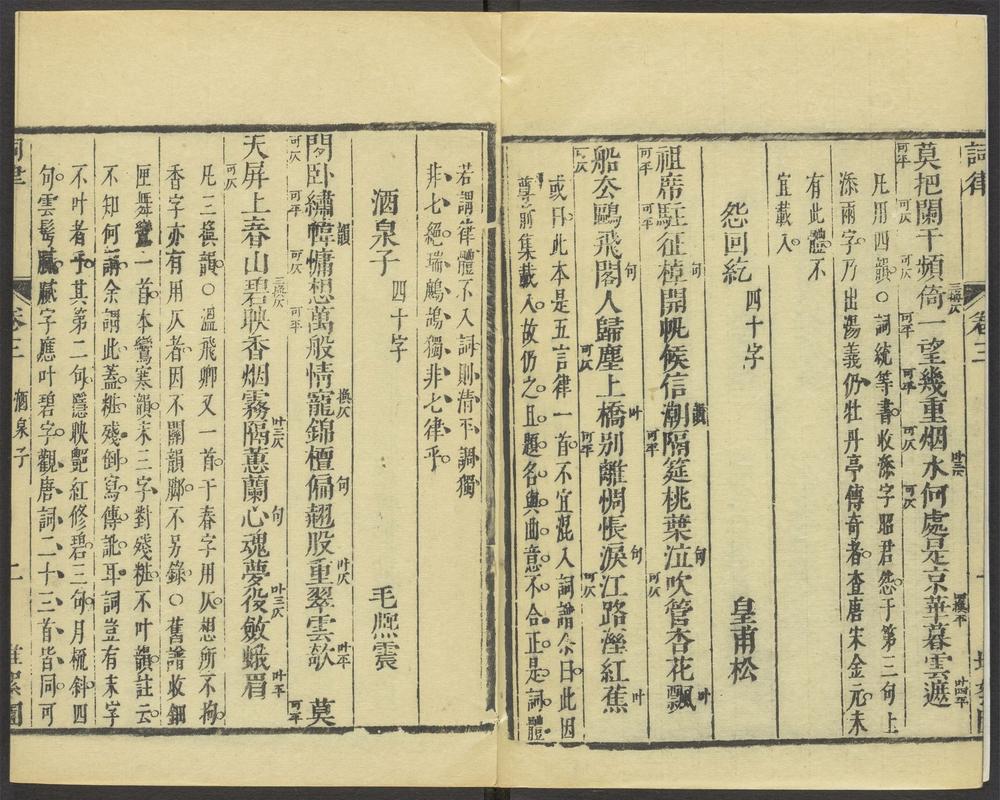 詞律 卷三 一
莫把闌干頻倚一望幾重烟水何處是京華暮雲遮
凡用四韻○詞統等書收添字昭君怨于第三句上
添兩字乃出湯義仍牡丹亭傳奇者查唐宋金元未
有此體不
宜載入
怨回紇 四十字 皇甫松
祖席駐征橈韻開帆候信潮韻隔筵桃葉泣句吹管杏花飄叶
船去鷗飛閣句人歸塵上橋叶別離惆悵淚句江路溼紅蕉叶
或曰此本是五言律一首不宜混入詞譜余曰此因
尊前集載入故仍之且題名與曲意不合正是詞體
若謂律體不入詞則清平調獨
非七絕瑞鷓鴣獨非七律乎
酒泉子 四十字 毛熙震
閑臥繡幃韻慵想萬般情寵換仄錦檀偏句翹股重叶仄翠雲欹叶平 莫
天屏上春山碧三換仄映香烟霧隔叶三仄蕙蘭心句魂夢役叶三仄斂蛾眉叶平
凡三換韻○溫飛卿又一首于春字用仄想所不拘
香字亦有用仄者因不關韻腳不另錄○舊譜收鈿
匣舞鸞一首本鸞寒韻末三字對殘粧不叶韻註云
不知何謂余謂此蓋粧殘倒寫傳訛耳詞豈有末字
不叶者乎其第二句隱映艷紅修碧三句月梳斜四
句雲鬢膩膩字應叶碧字觀唐詞二十三首皆同可
詞律 卷三 酒泉子 二